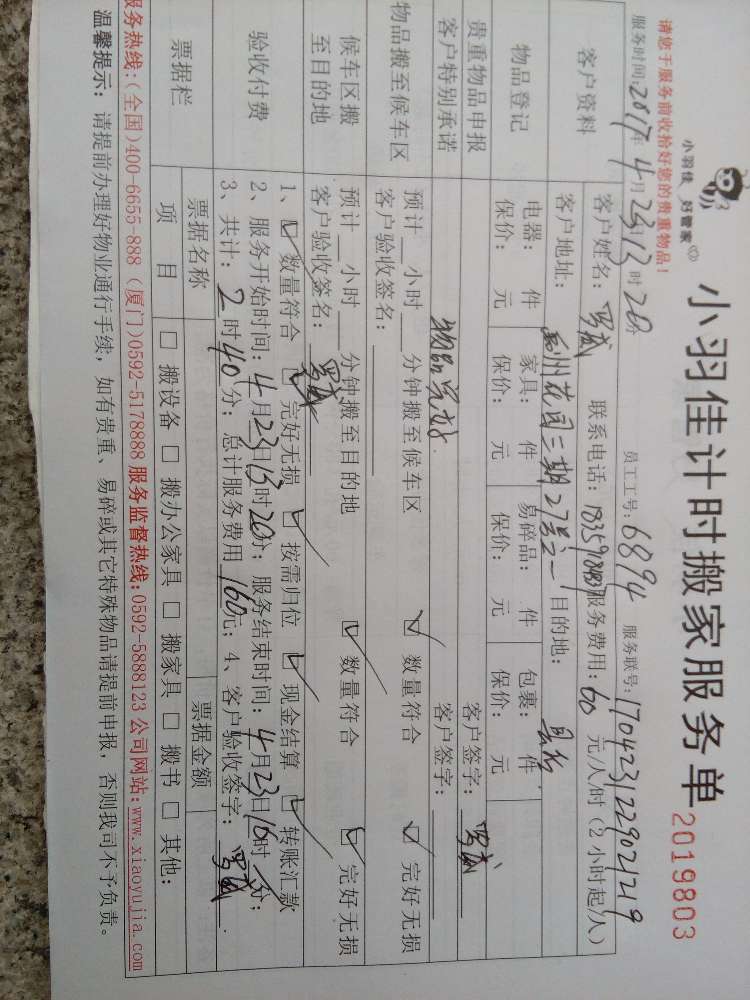 小羽佳 好管家
小羽佳计时搬家服务单 2019803
请您于服务前收拾好您的贵重物品!
服务时间:2017年4月23日13时20分 员工工号:6894 服务联号:1704231229021219
客户资料 客户姓名: 联系电话: 服务费用:60 元/人/时(2小时起/人)
客户地址: 禹州花园三期27号之一 目的地: 县后
物品登记 电器: 件 家具: 件 易碎品: 件 包裹: 件
保价: 元 保价: 元 保价: 元 保价: 元
贵重物品申报 客户签字:
客户特别承诺 物品完好. 客户签字:
物品搬至候车区 预计__小时__分钟搬至候车区 ☑ 数量符合 ☑ 完好无损
客户验收签名:
候车区搬至目的地 预计__小时__分钟搬至目的地 ☑ 数量符合 ☑ 完好无损
客户验收签名:
验收付费 1、☑ 数量符合 ☑ 完好无损 ☑ 按需归位 ☑ 现金结算 ☑ 转账汇款
2、服务开始时间:4月23日13时20分; 服务结束时间:4月23日16时 分;
3、共计:2时40分; 总计服务费用 160元; 4、客户验收签字:
票据栏 票据名称 票据金额
项 目 □ 搬设备 □ 搬办公家具 □ 搬家具 □ 搬书 □ 其他:
服务热线:(全国)400-6655-888 (厦门)0592-5178888 服务监督热线:0592-5888123 公司网站:www.xiaoyujia.com
温馨提示: 请提前办理好物业通行手续, 如有贵重、易碎或其它特殊物品请提前申报, 否则我司不予负责。